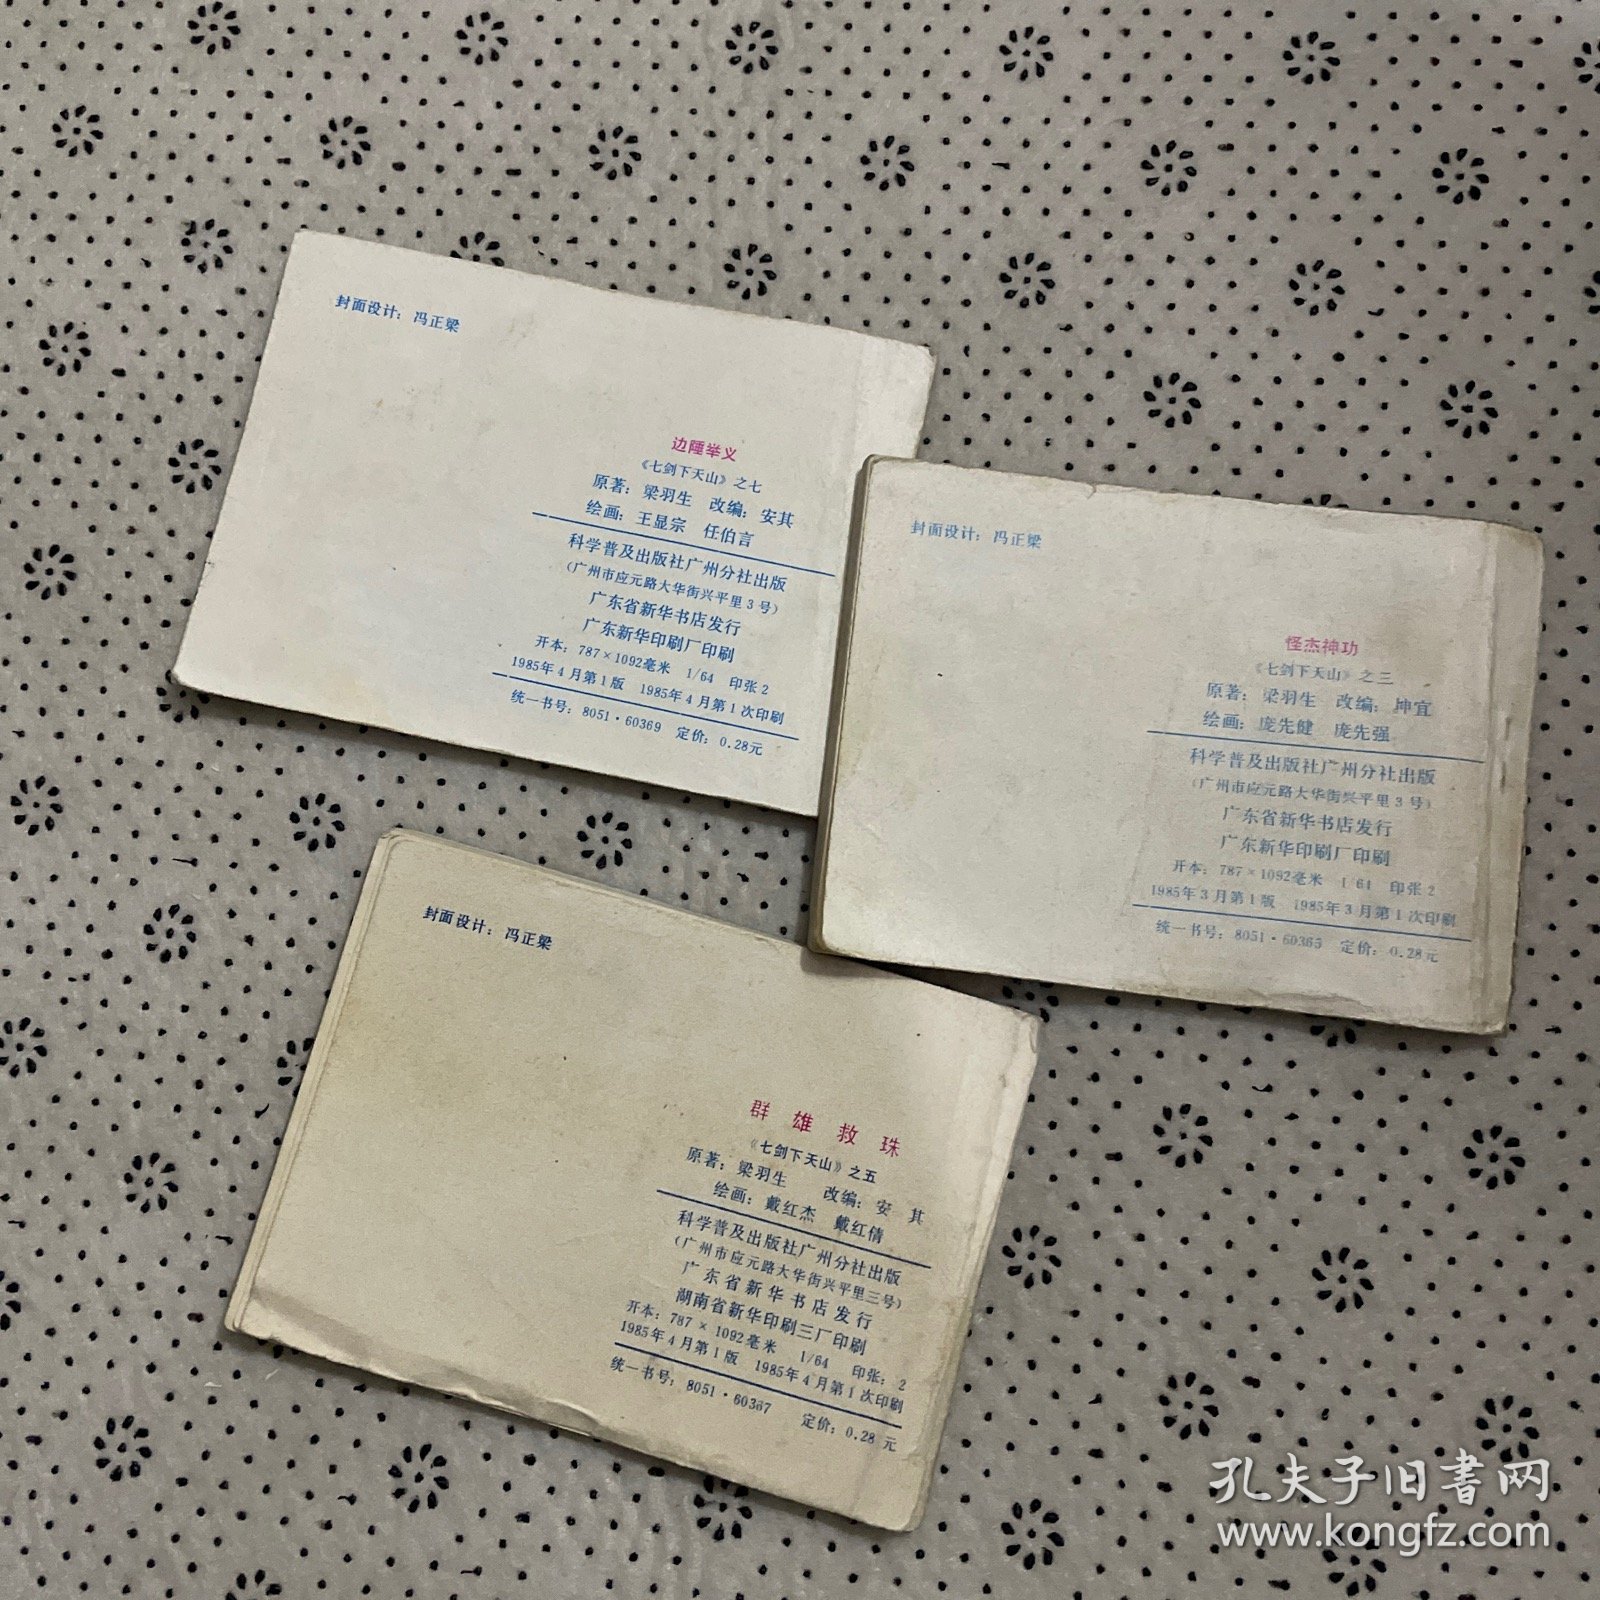 封面设计：冯正梁
边陲举义
《七剑下天山》之七
原著：梁羽生 改编：安其
绘画：王显宗 任伯言
科学普及出版社广州分社出版
（广州市应元路大华街兴平里3号）
广东省新华书店发行
广东新华印刷厂印刷
开本：787×1092毫米 1/64 印张2
1985年4月第1版 1985年4月第1次印刷
统一书号：8051·60369 定价：0.28元
封面设计：冯正梁
怪杰神功
《七剑下天山》之三
原著：梁羽生 改编：坤宜
绘画：庞先健 庞先强
科学普及出版社广州分社出版
（广州市应元路大华街兴平里3号）
广东省新华书店发行
广东新华印刷厂印刷
开本：787×1092毫米 1 64 印张2
1985年3月第1版 1985年3月第1次印刷
统一书号：8051·60365 定价：0.28元
封面设计：冯正梁
群雄救珠
《七剑下天山》之五
原著：梁羽生 改编：安 其
绘画：戴红杰 戴红倩
科学普及出版社广州分社出版
（广州市应元路大华街兴平里三号）
广东省新华书店发行
湖南省新华印刷三厂印刷
开本：787×1092毫米 1/64 印张：2
1985年4月第1版 1985年4月第1次印刷
统一书号：8051·60367 定价：0.28元
孔夫子旧書网
www.kongfz.com